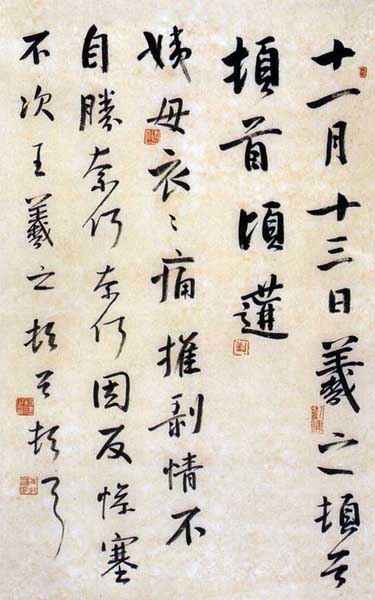 十一月十三日羲之頓首
頓首頃遘
姨母哀〻痛摧剝情不
自勝奈何奈何因反慘塞
不次王羲之頓首頓首